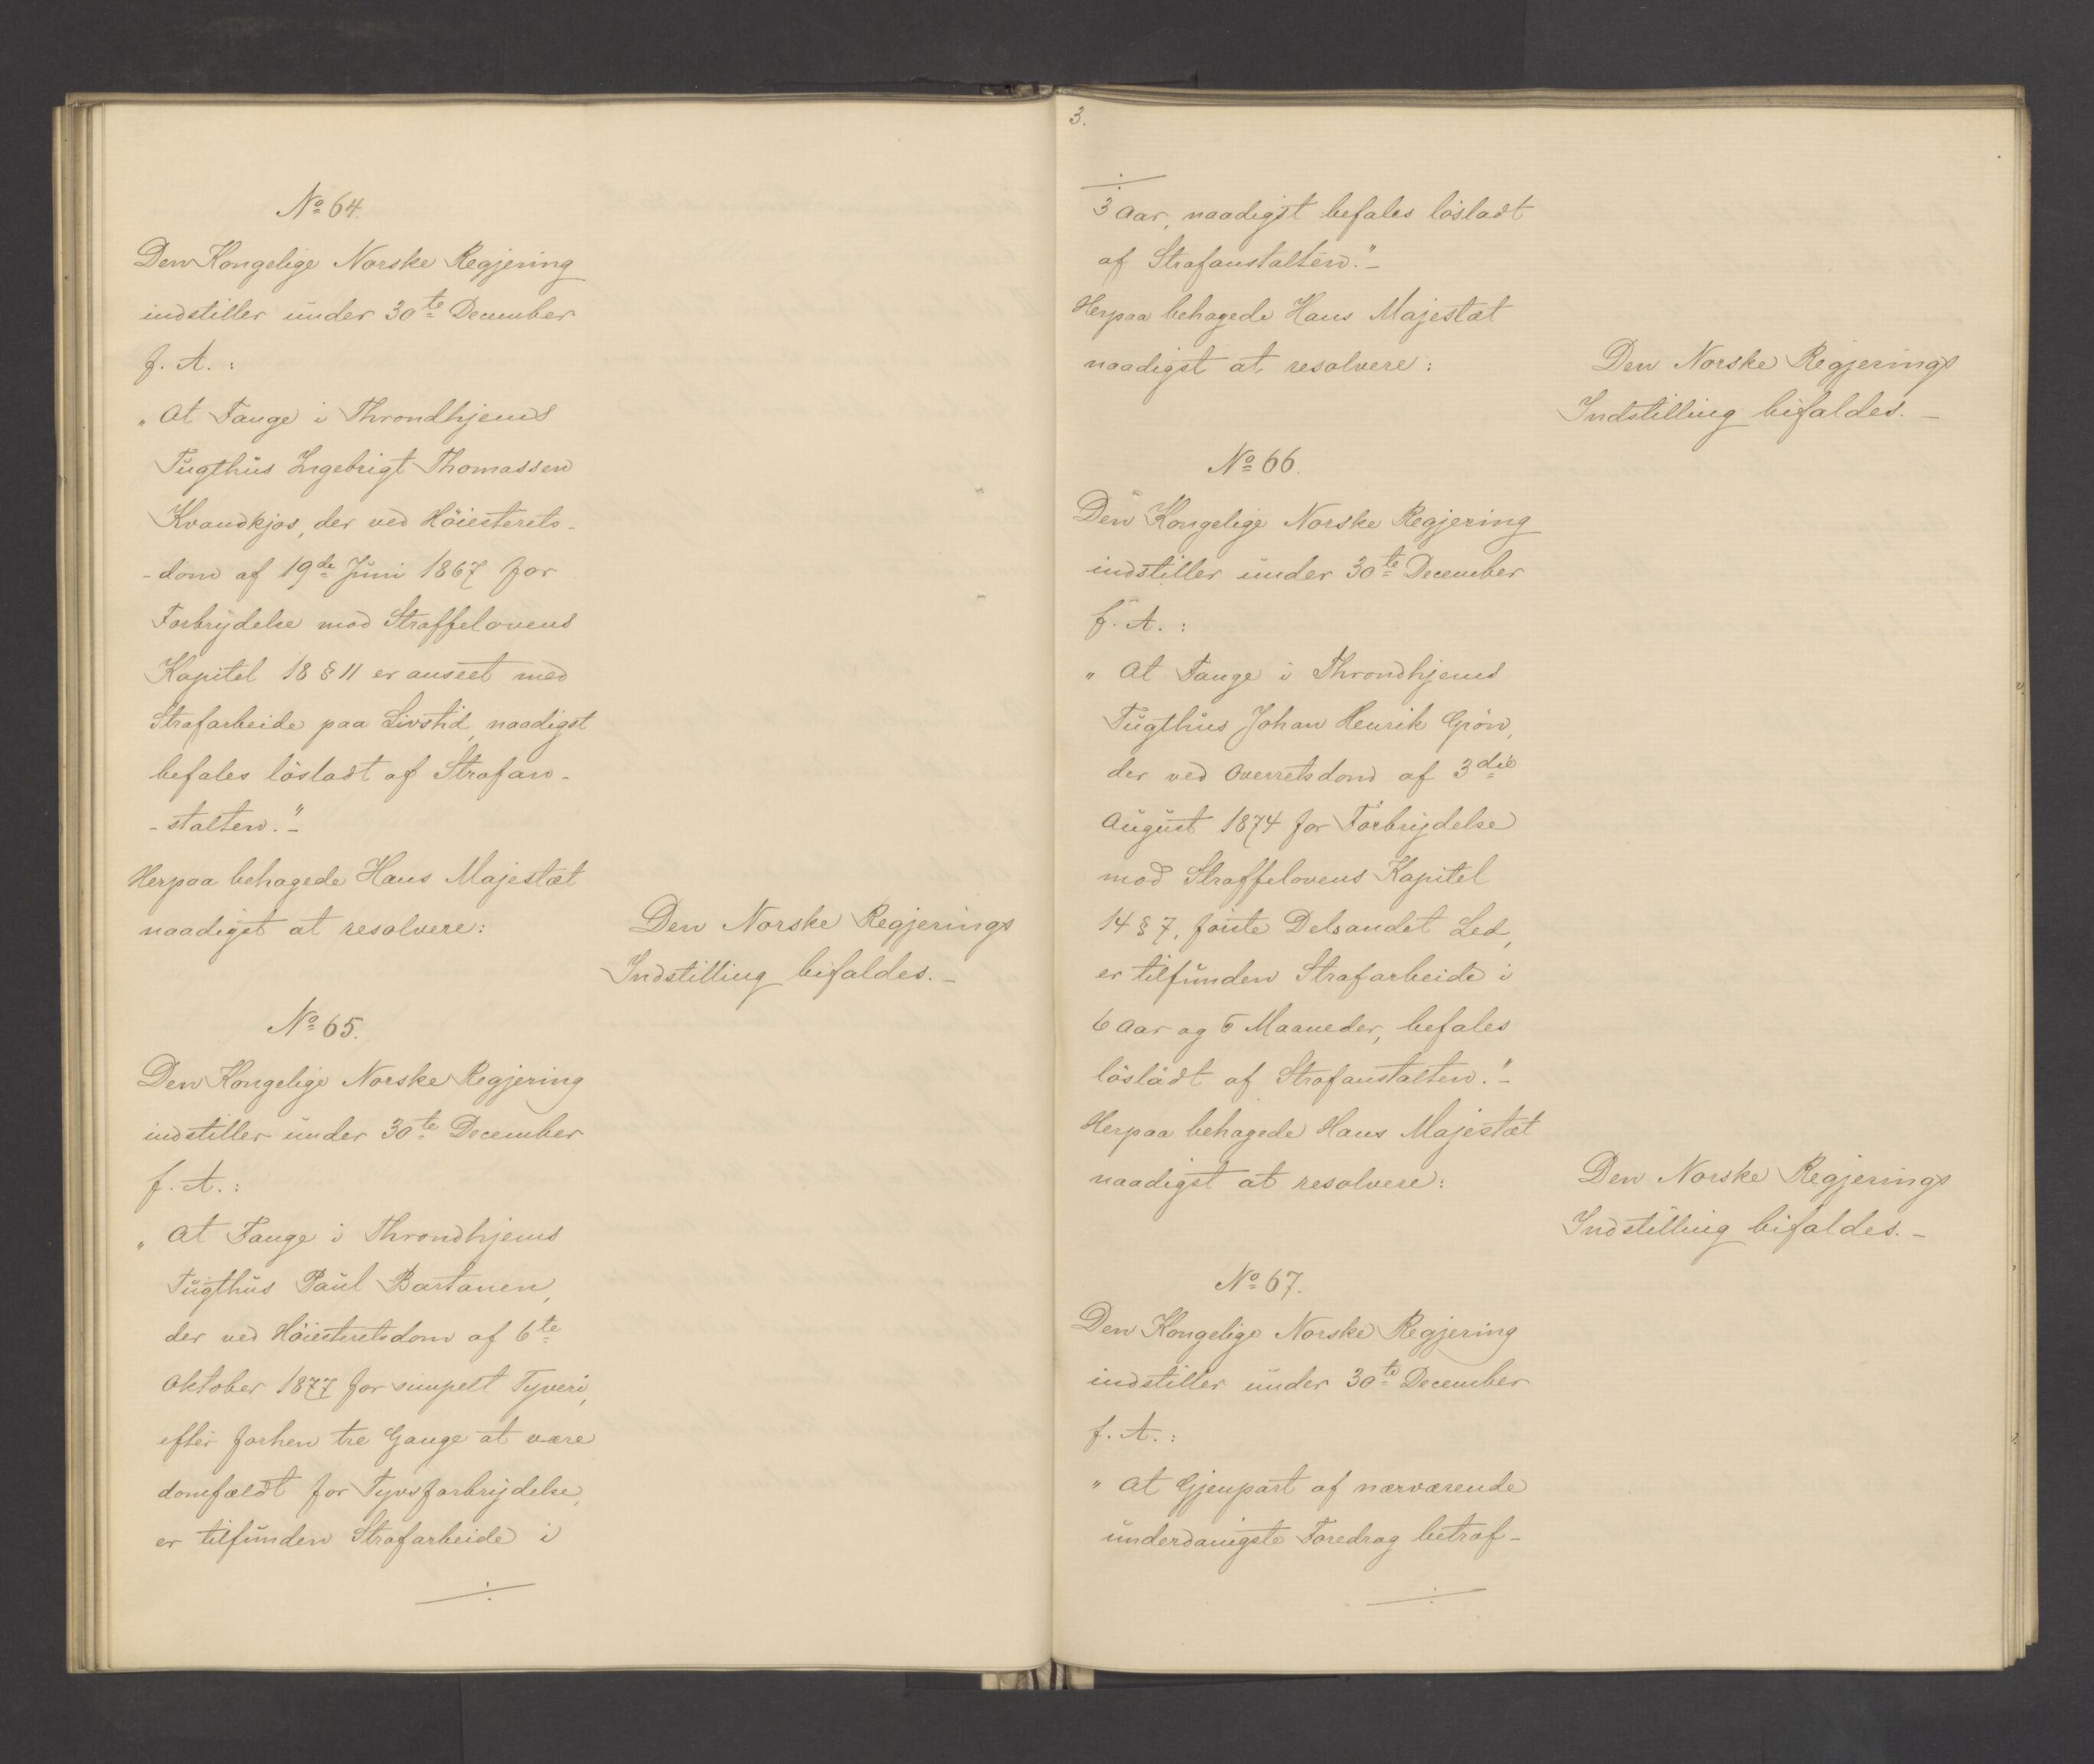 No 64.
Den Kongelige Norske Regjering
indstiller under 30te December
f. A. :
"At Fange i Throndhjems
Tugthus Ingebrigt Thomassen
Kvandkjos, der ved Höiesterets-
-dom af 19de Juni 1867 for
Forbrydelse mod Straffelovens
Kapitel 18 § 11 er anseet med
Strafarbeide paa Livstid, naadigst
befales lösladt af Strafan-
-stalten."-
Herpaa behagede Hans Majestæt
naadigst at resolvere:
Den Norske Regjerings
Indstilling bifaldes. -
No 65.
Den Kongelige Norske Regjering
indstiller under 30te December
f. A. :
"At Fange i Throndhjems
Tugthus Paul Bartanen,
der ved Höiesteretsdom af 6te
Oktober 1877 for simpelt Tyveri,
efter forhen tre Gange at være
domfældt for Tyvsforbrydelse,
er tilfunden Strafarbeide i
3.
3 Aar, naadigst befales lösladt
af Strafanstalten."-
Herpaa behagede Hans Majestæt
naadigst at resolvere:
Den Norske Regjerings
Indstilling bifaldes. -
No 66.
Den Kongelige Norske Regjering
indstiller under 30te December
f. A. :
"At Fange i Throndhjems
Tugthus Johan Henrik Grön,
der ved Overretsdom af 3die
August 1874 for Forbrydelse
mod Straffelovens Kapitel
14 § 7, förste Dels andet Led,
er tilfunden Strafarbeide i
6 Aar og 6 Maaneder, befales
lösladt af Strafanstalten."-
Herpaa behagede Hans Majestæt
naadigst at resolvere:
Den Norske Regjerings
Indstilling bifaldes. -
No 67.
Den Kongelige Norske Regjering
indstiller under 30te December
f. A. :
"At Gjenpart af nærværende
underdanigste Foredrag betræf-